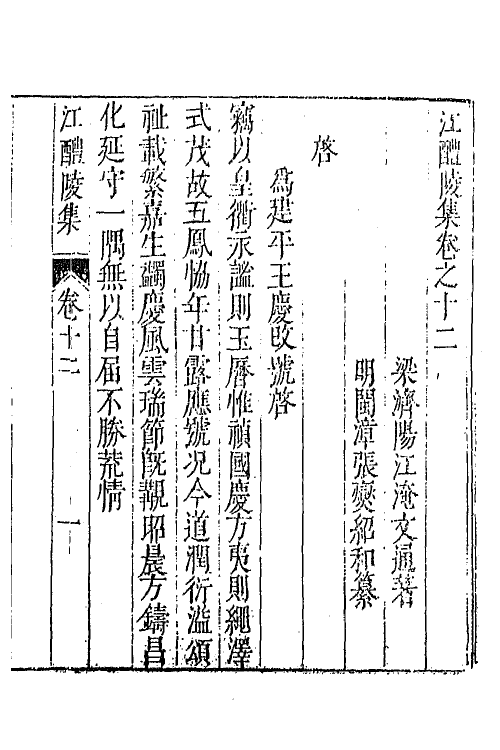 江醴陵集卷之十二
梁濟陽江淹文通著
明閩漳張爕紹和纂
啓
爲建平王慶改號啓
竊以皇衢永謐則玉曆惟禎國慶方夷則繩澤
式茂故五鳳恊年甘露應號况今道潤衍溢頌
祉載繁嘉生蠲慶風雲瑞節旣觀昭晨方鑄昌
化延守一隅無以自届不勝荒情
江醴陵集
卷十二
一